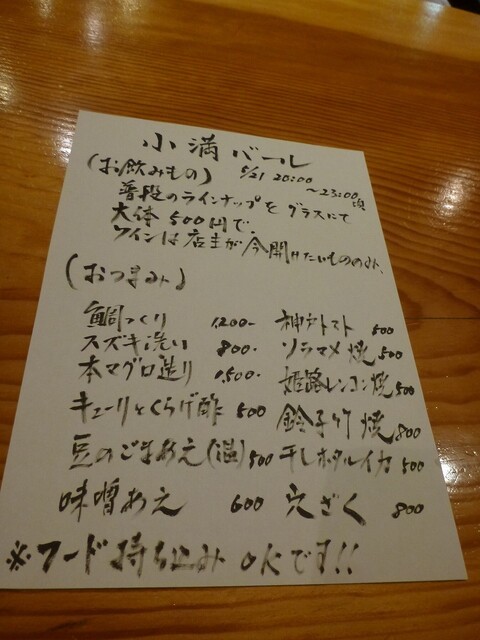 小満バール
(お飲みもの) 5/21 20:00～23:00頃
普段のラインナップをグラスにて
大体500円で、
ワインは店主が今開けたいもののみ、
(おつまみ)
鯛つくり 1,200-
スズキ洗い 800-
本マグロ造り 1,500-
キューリとくらげ酢 500
豆のごまあえ(温) 500
味噌あえ 600
神戸トマト 500
ソラマメ焼 500
姫路レンコン焼 500
鈴子竹焼 800
干しホタルイカ 500
穴ざく 800
※フード持ち込みOKです!!